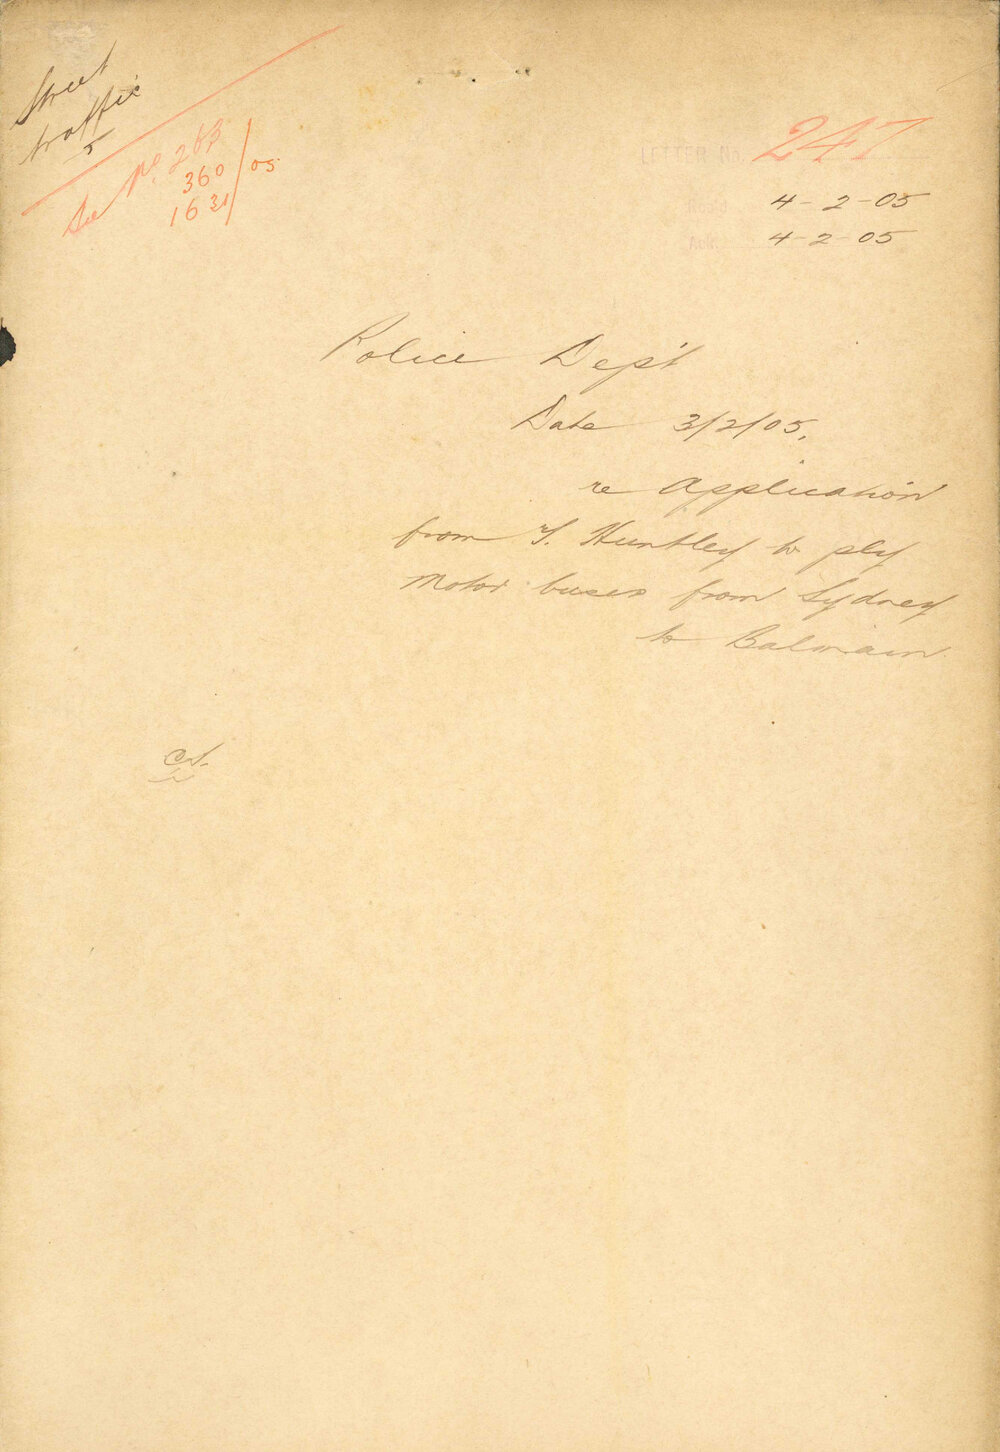 Street
traffic
5
See No. 263
360 /05
1631
LETTER No. 247
Recd 4-2-05
Ack. 4-2-05
Police Dep't
Date 3/2/05,
re Application
from T. Huntley to ply
Motor buses from Sydney
to Balmain